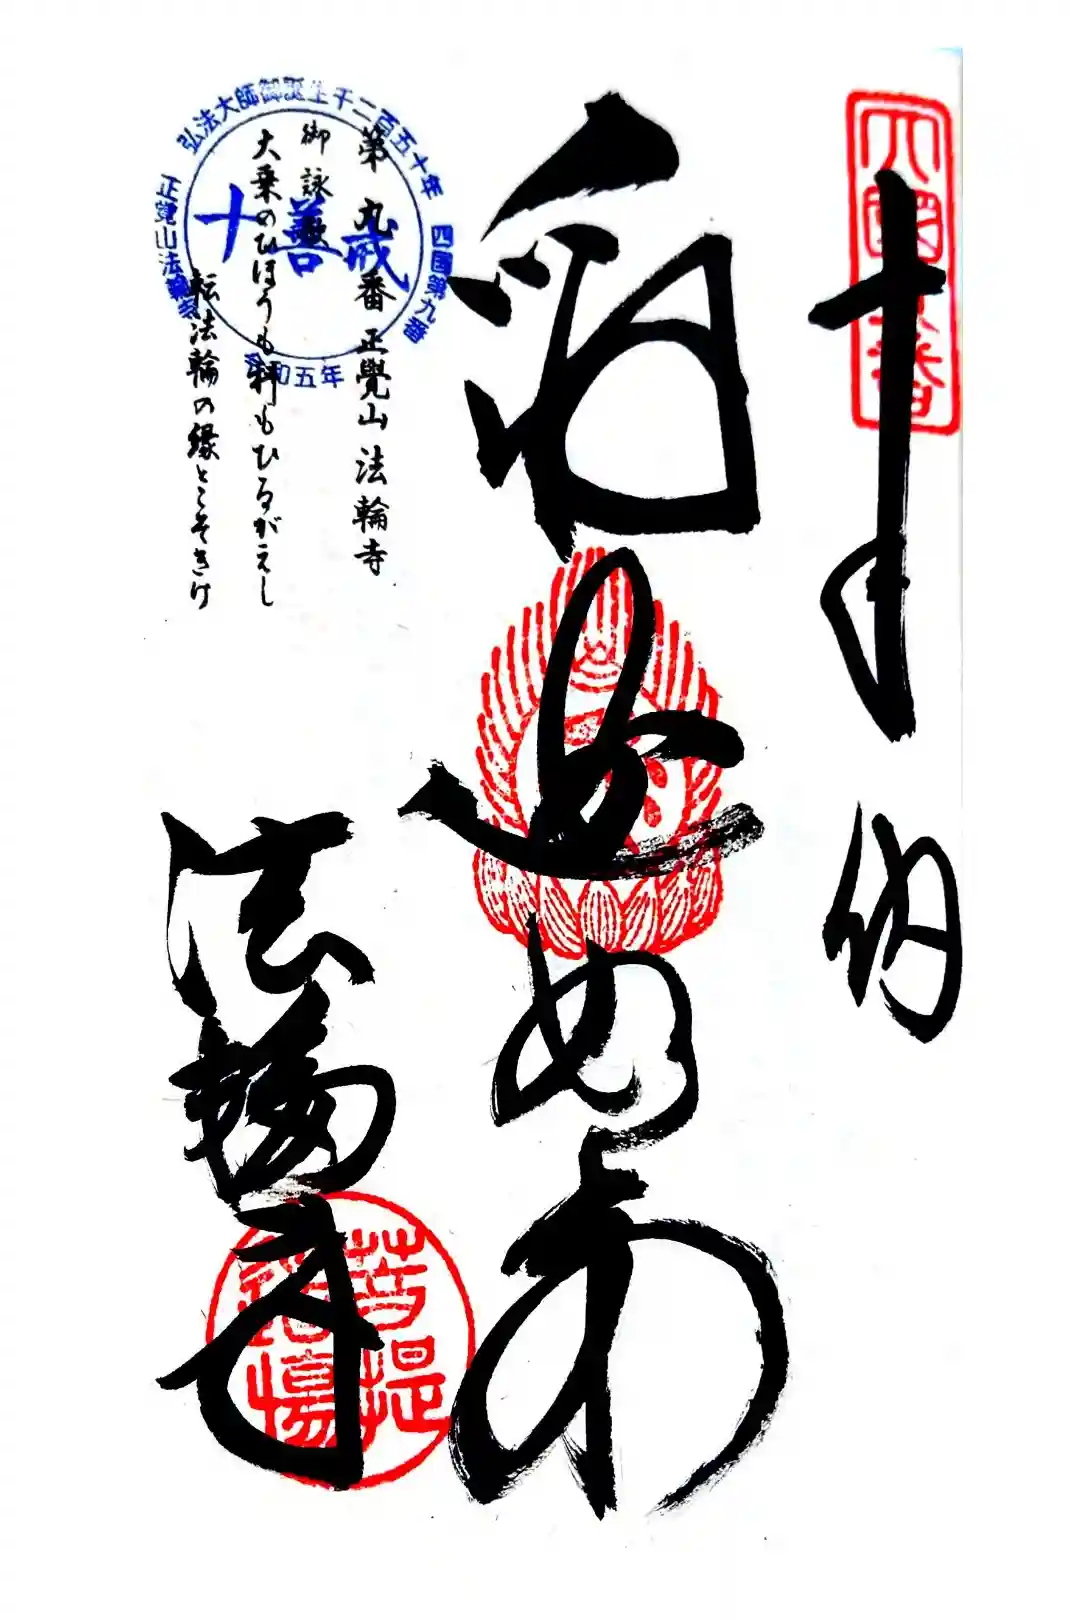 奉納
四國第九番
釈迦如来
第九番 正覺山 法輪寺
御詠歌
大乗のひほうも科もひるがえし
転法輪の縁とこそきけ
弘法大師御誕生千二百五十年 四国第九番
十善戒
正覚山法輪寺
令和五年
法輪寺
菩提道場